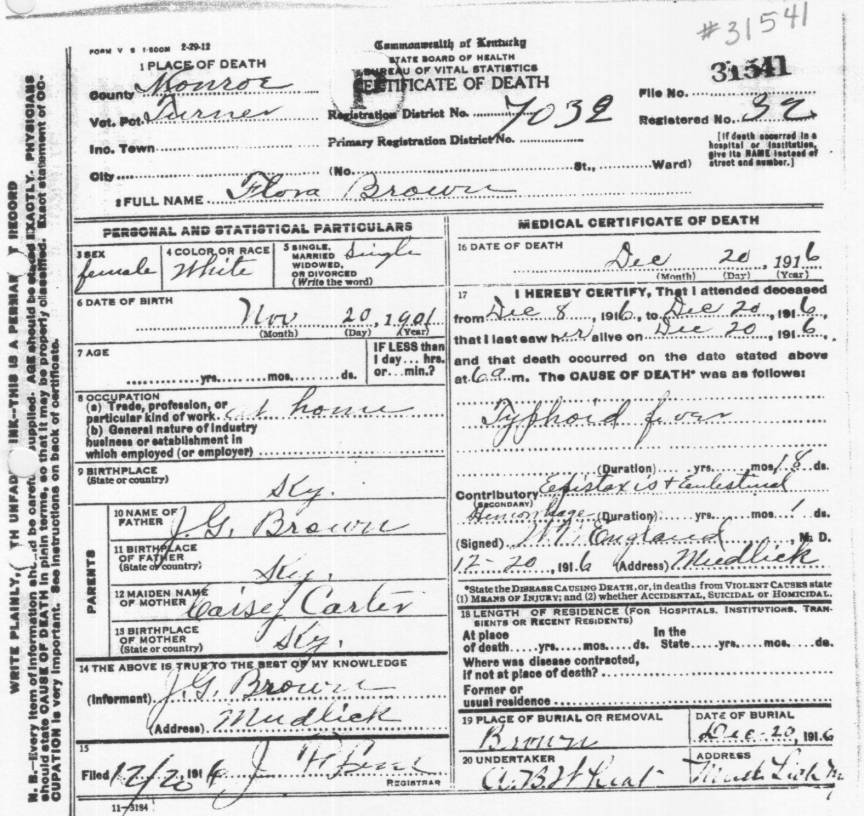 #31541
FORM V S 1-500M 2-29-12
Commonwealth of Kentucky
STATE BOARD OF HEALTH
BUREAU OF VITAL STATISTICS
CERTIFICATE OF DEATH
1 PLACE OF DEATH
County Monroe
File No. 31541
Vot. Pct. Turner
Registration District No. 7039
Registered No. 32
Inc. Town
Primary Registration District No.
[If death occurred in a hospital or institution, give its NAME instead of street and number.]
City (No. St., Ward)
2 FULL NAME Flora Brown
PERSONAL AND STATISTICAL PARTICULARS
3 SEX female
4 COLOR OR RACE White
5 SINGLE, MARRIED WIDOWED, OR DIVORCED (Write the word) Single
6 DATE OF BIRTH
Nov 20, 1901
(Month) (Day) (Year)
7 AGE
yrs. mos. ds.
IF LESS than 1 day... hrs. or... min.?
8 OCCUPATION
(a) Trade, profession, or particular kind of work at home
(b) General nature of industry
business or establishment in
which employed (or employer)
9 BIRTHPLACE
(State or country) Ky.
PARENTS
10 NAME OF FATHER J. G. Brown
11 BIRTHPLACE OF FATHER (State or country) Ky.
12 MAIDEN NAME OF MOTHER Carter
13 BIRTHPLACE OF MOTHER (State or country) Ky.
14 THE ABOVE IS TRUE TO THE BEST OF MY KNOWLEDGE
(Informant) J. G. Brown
(Address) Mudlick
15
Filed 12/20 1916 J
REGISTRAR
11-3184
MEDICAL CERTIFICATE OF DEATH
16 DATE OF DEATH
Dec 20, 1916
(Month) (Day) (Year)
17 I HEREBY CERTIFY, That I attended deceased
from Dec 8, 1916, to Dec 20, 1916,
that I last saw her alive on Dec 20, 1916,
and that death occurred on the date stated above
at 6 a m. The CAUSE OF DEATH* was as follows:
Typhoid fever
(Duration) yrs. mos. 18 ds.
Contributory Epistaxis +
(SECONDARY)
Hemorrhage (Duration) yrs. mos. 1 ds.
(Signed) England, M. D.
12-20, 1916 (Address) Mudlick
*State the DISEASE CAUSING DEATH, or, in deaths from VIOLENT CAUSES state
(1) MEANS OF INJURY; and (2) whether ACCIDENTAL, SUICIDAL or HOMICIDAL.
18 LENGTH OF RESIDENCE (FOR HOSPITALS, INSTITUTIONS, TRANSIENTS OR RECENT RESIDENTS)
At place of death yrs. mos. ds. In the State yrs. mos. ds.
Where was disease contracted,
if not at place of death?
Former or
usual residence
19 PLACE OF BURIAL OR REMOVAL Brown
DATE OF BURIAL Dec-20, 1916
20 UNDERTAKER
ADDRESS Mud Lick
WRITE PLAINLY, TH UNFAD INK--THIS IS A PERMAN T RECORD
N. B.--Every item of information should be carefu supplied. AGE should be stated EXACTLY. PHYSICIANS
should state CAUSE OF DEATH in plain terms, so that it may be properly classified. Exact statement of OC-
CUPATION is very important. See instructions on back of certificate.